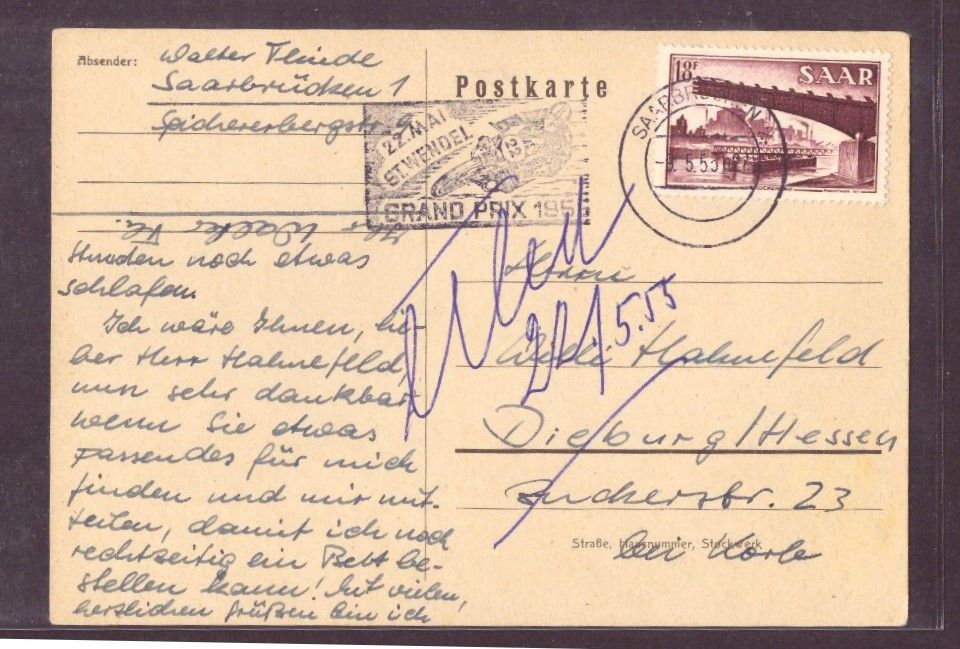 Absender: Walter Thiede
Saarbrücken 1
Spichererbergstr.
Postkarte
18F SAAR
SAARBRÜCKEN
22. MAI
ST. WENDEL
GRAND PRIX 195
Ihr Walter Th.
Stunden noch etwas
schlafen.
Ich wäre Ihnen, lie-
ber Herr Hahnefeld,
nun sehr dankbar
wenn Sie etwas
passendes für mich
finden und mir mit-
teilen, damit ich noch
rechtzeitig ein Bett be-
stellen kann! Mit vielen,
herzlichen Grüßen bin ich
Herrn
Hahnefeld
Dieburg/Hessen
Zuckerstr. 23
Straße, Hausnummer, Stockwerk
bei Korb
5.55